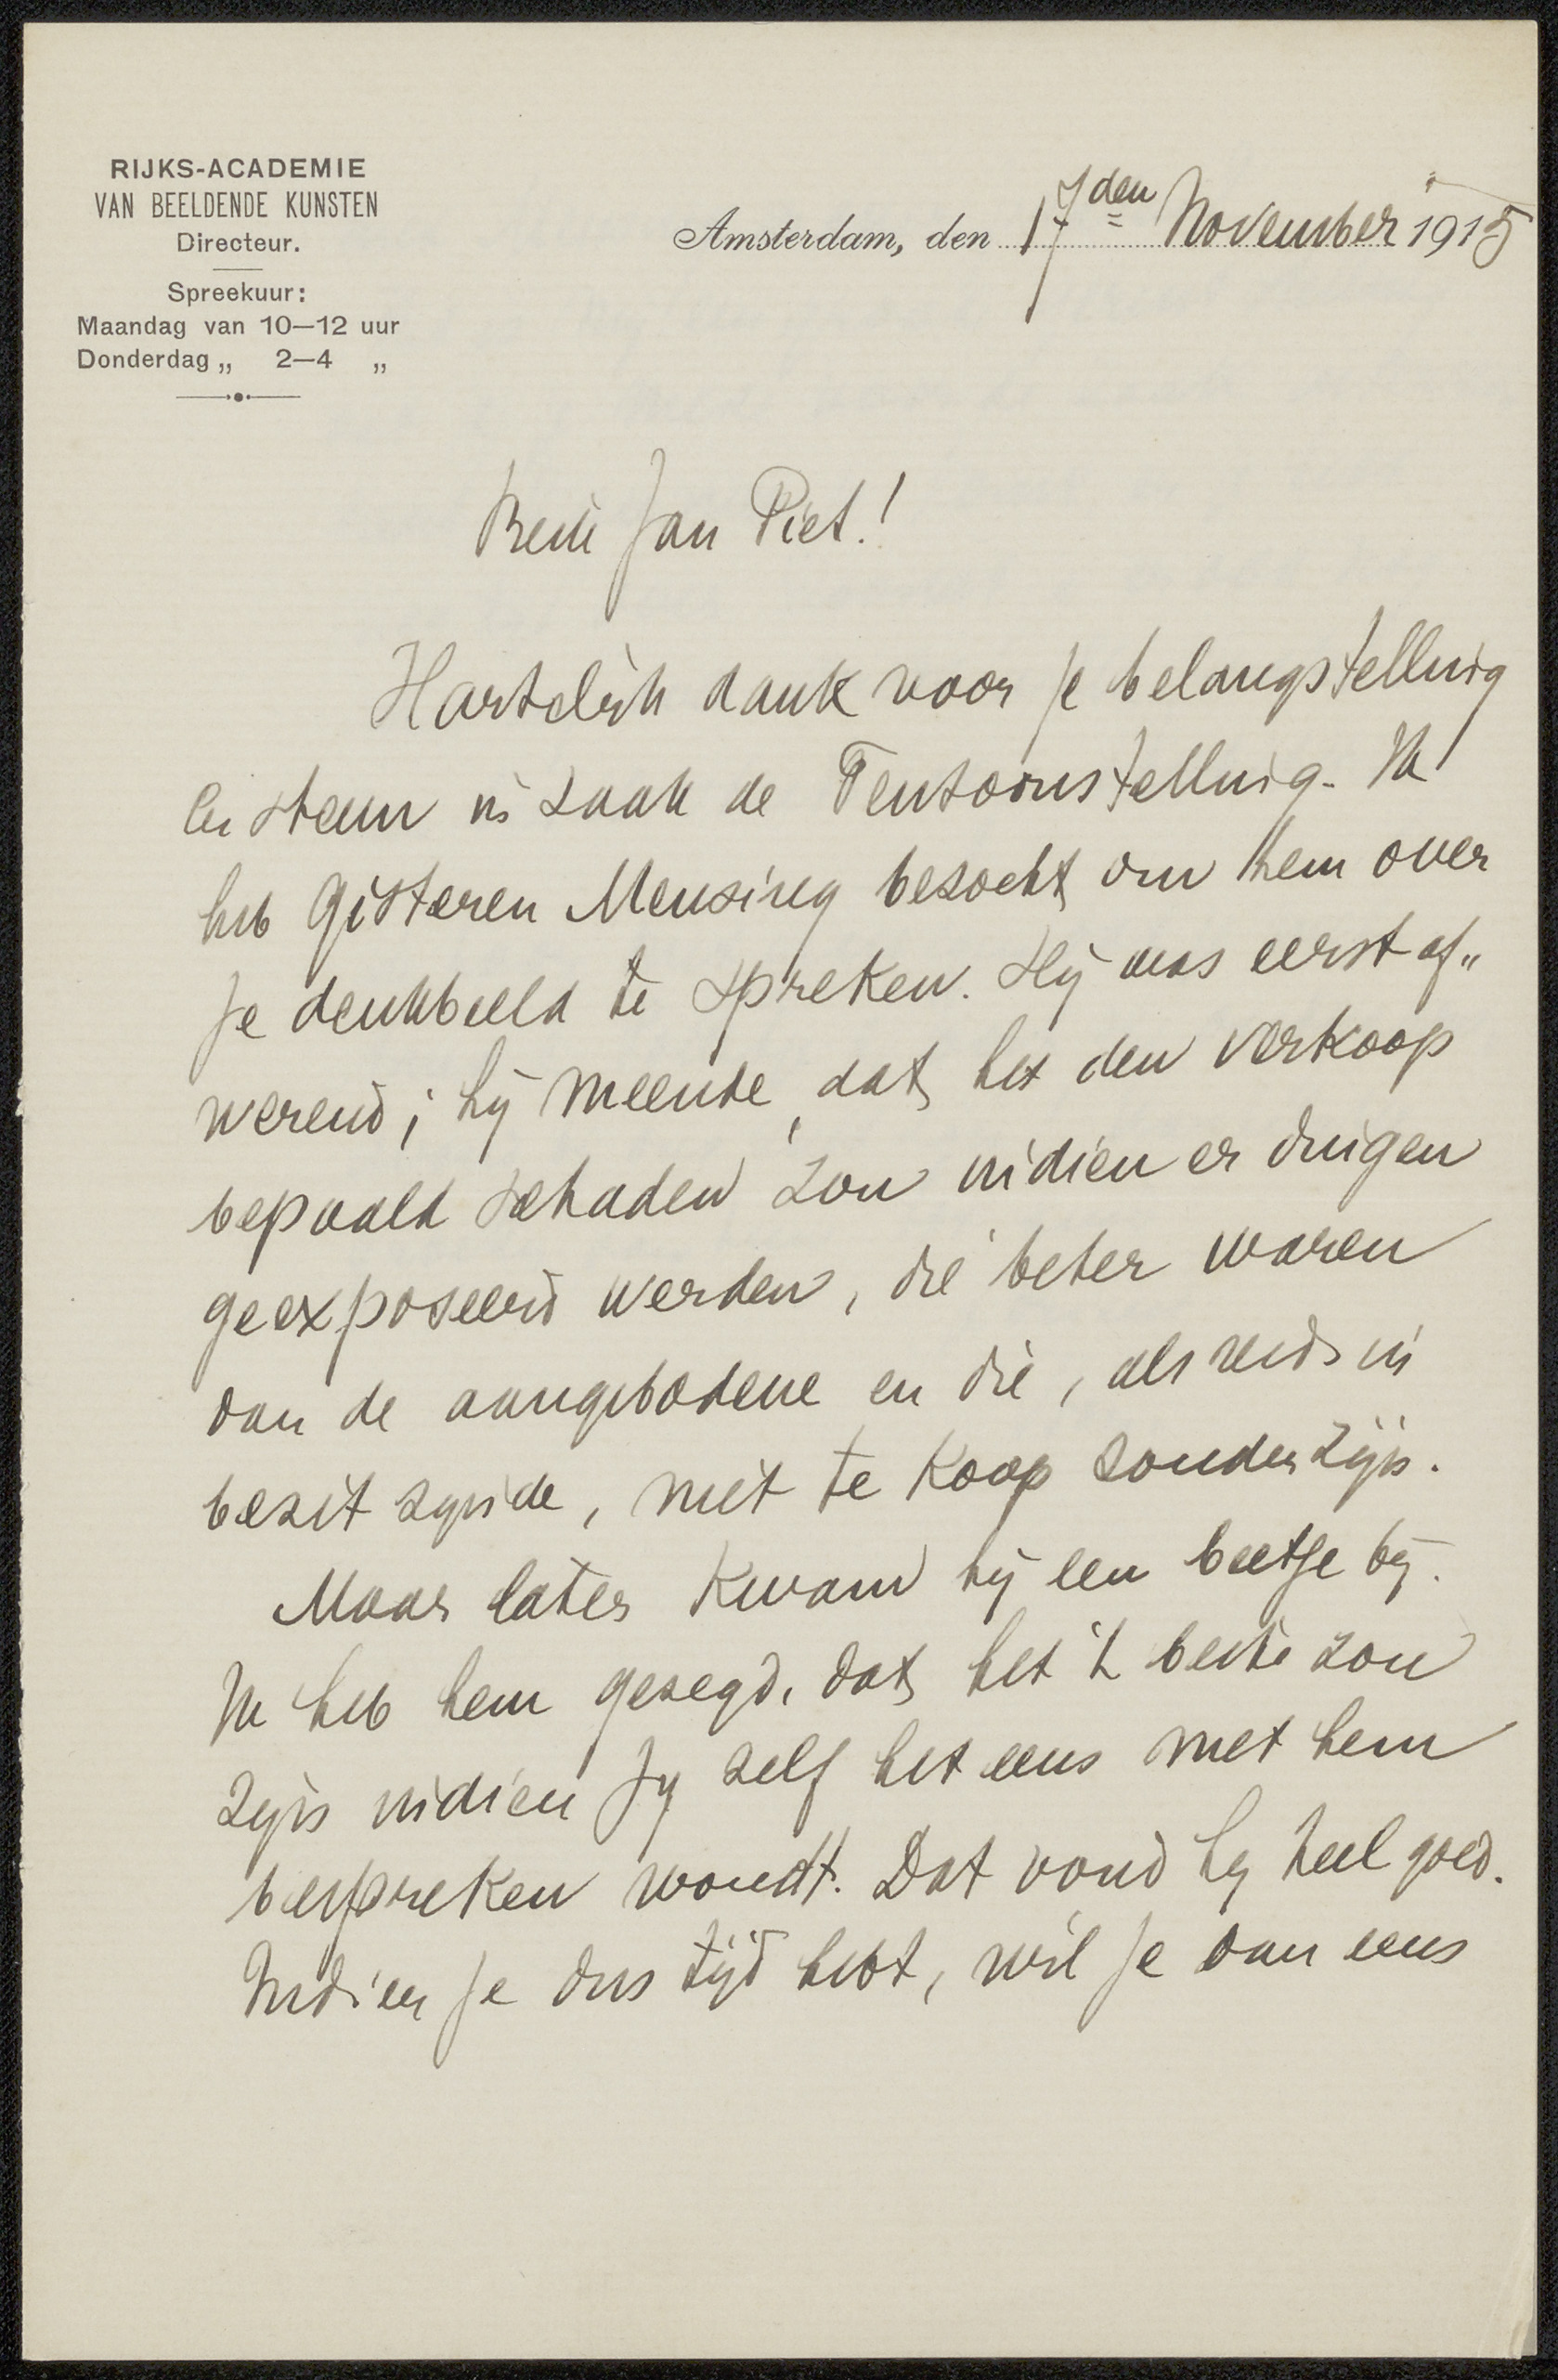 RIJKS-ACADEMIE
VAN BEELDENDE KUNSTEN
Directeur.
Spreekuur:
Maandag van 10—12 uur
Donderdag „ 2—4 „
Amsterdam, den 17den November 1915
Beste Jan Piet!
Hartelijk dank voor je belangstelling
en steun in zaak de Tentoonstelling. Ik
heb gisteren Mensing bezocht om hem over
je denkbeeld te spreken. Hij was eerst af„
werend; hij meende, dat het den verkoop
bepaald schaden zou indien er dingen
geexposeerd werden, die beter waren
dan de aangebodene en die, als reeds in
bezit zynde, niet te koop zouden zijn.
Maar later kwam hij een beetje bij.
Ik heb hem gezegd, dat het 't beste zou
zijn indien jy zelf het eens met hem
bespreken woudt. Dat vond hy heel goed.
Indien je dus tijd hebt, wil je dan eens